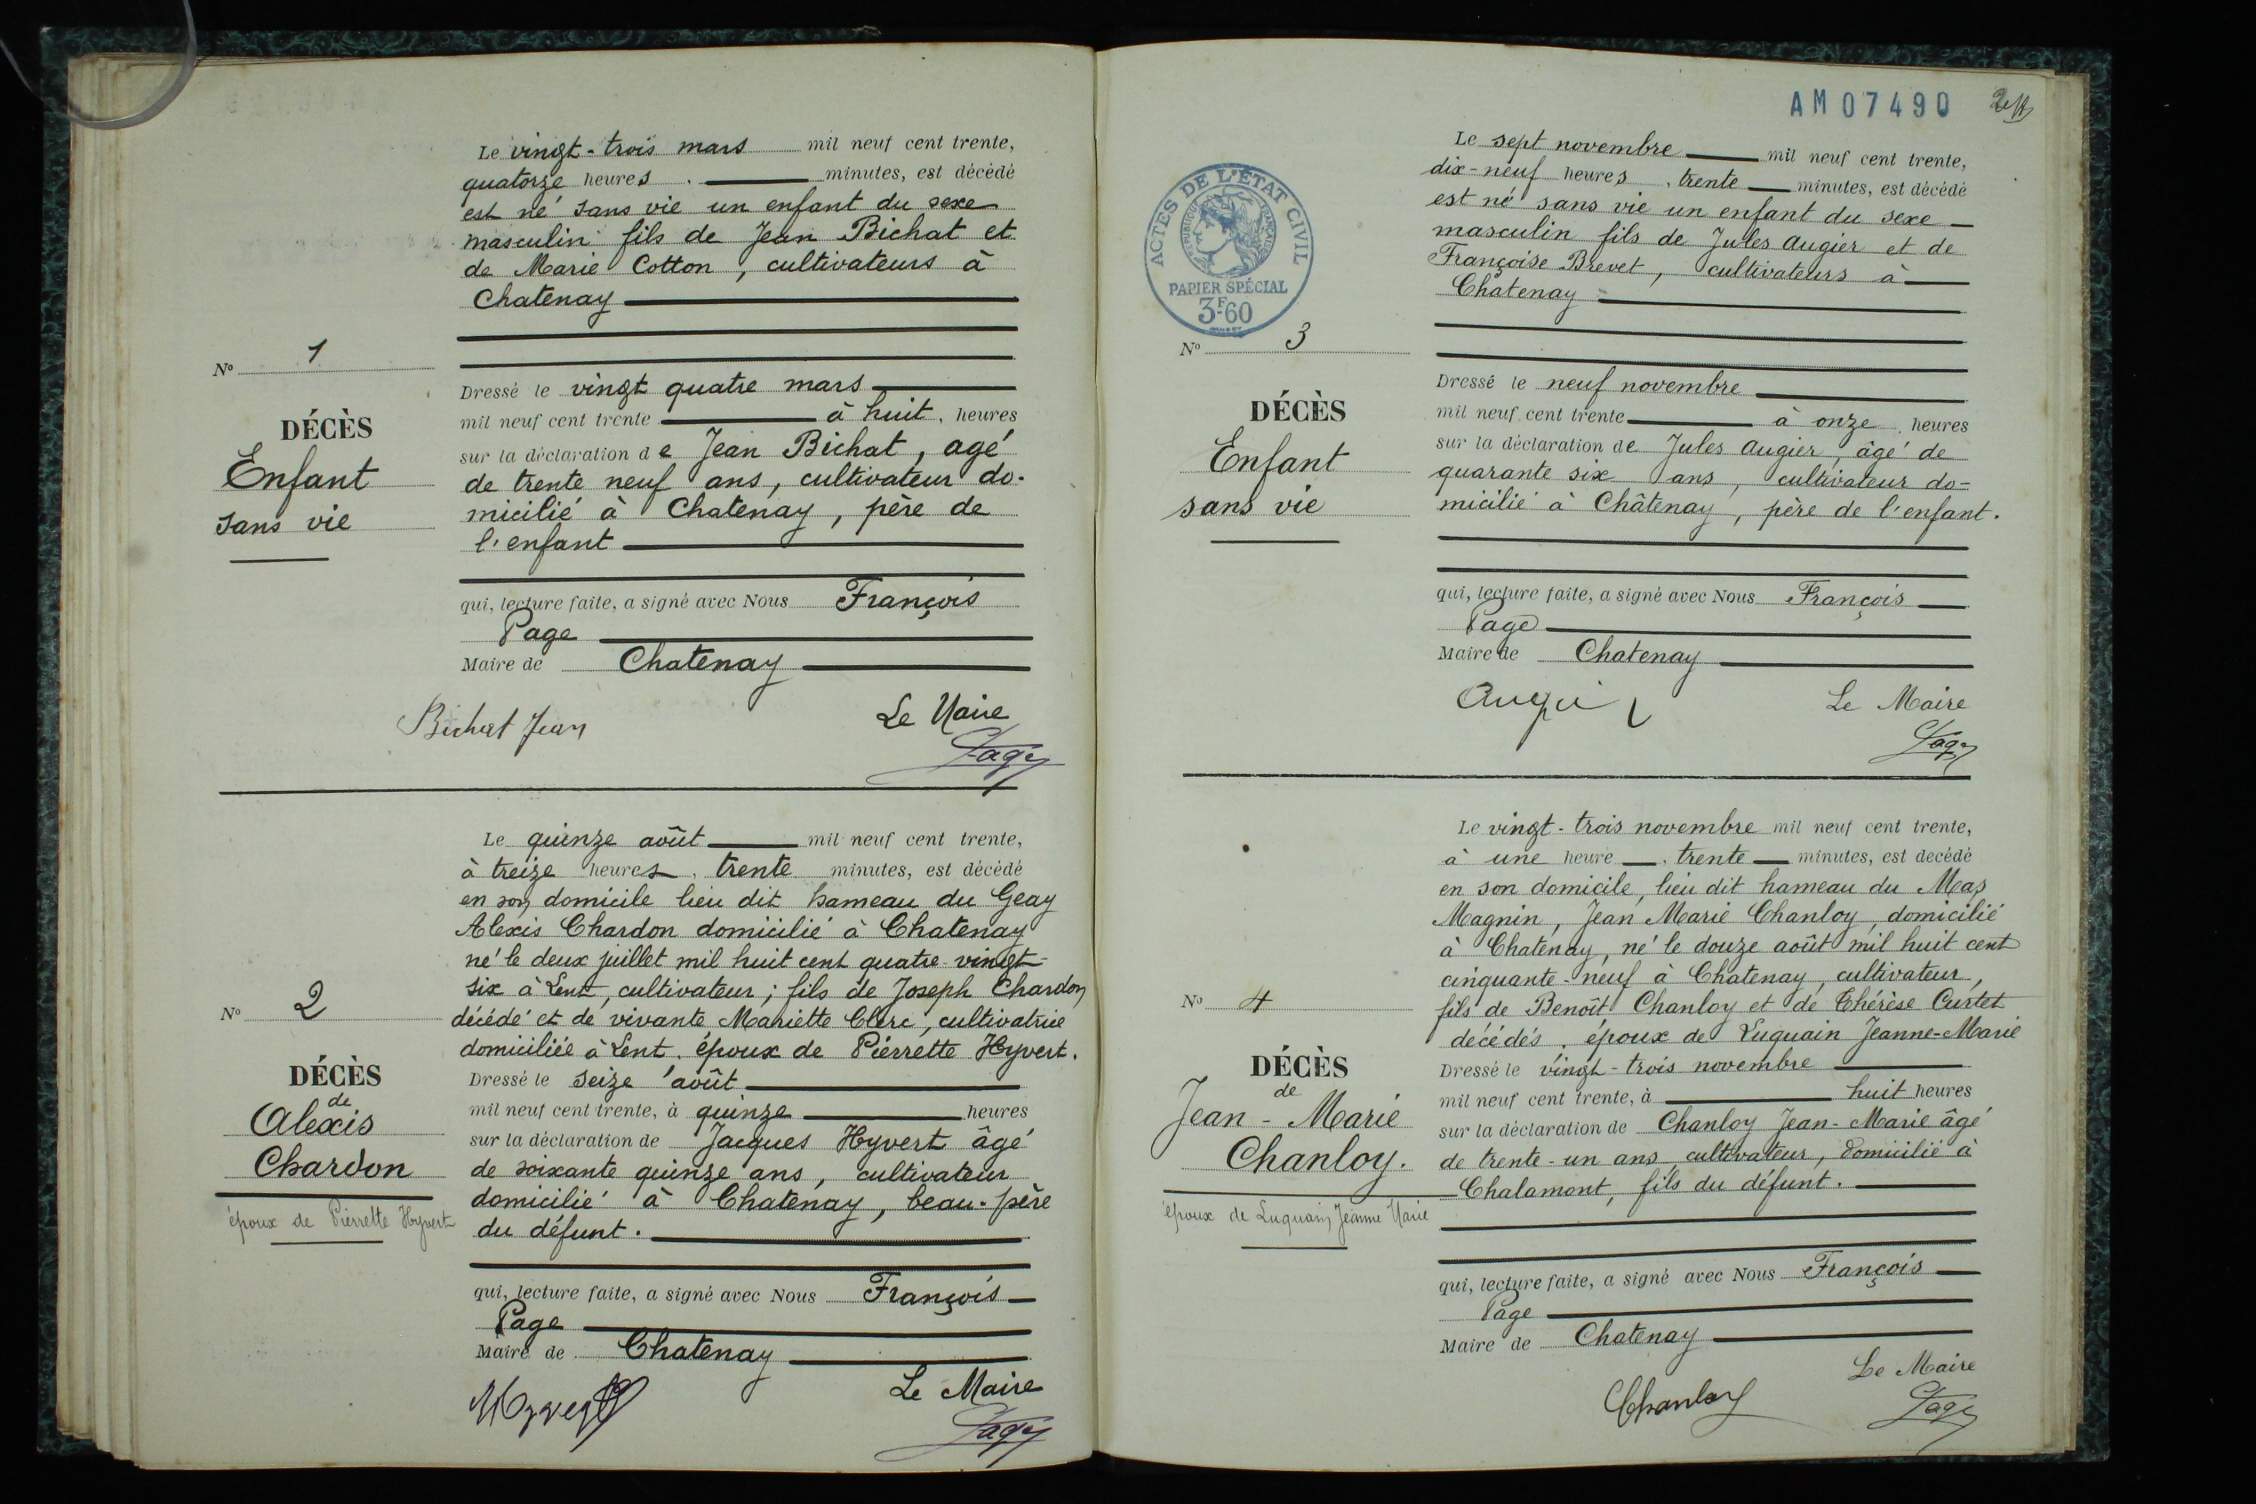 Le vingt-trois mars mil neuf cent trente,
quatorze heures. minutes, est décédé
est né sans vie un enfant du sexe
masculin fils de Jean Bichat et
de Marie Cotton, cultivateurs à
Chatenay
N° 1
DÉCÈS
Enfant
sans vie
Dressé le vingt quatre mars
mil neuf cent trente à huit. heures
sur la déclaration de Jean Bichat, agé
de trente neuf ans, cultivateur do-
micilié à Chatenay, père de
l'enfant
qui, lecture faite, a signé avec Nous François
Page
Maire de Chatenay
Bichat Jean
Le Maire
Page
Le quinze août mil neuf cent trente,
à treize heures. trente minutes, est décédé
en son domicile lieu dit hameau du Geay
Alexis Chardon domicilié à Chatenay
né le deux juillet mil huit cent quatre-vingt-
six à Lent, cultivateur; fils de Joseph Chardon
décédé et de vivante Mariette Clerc, cultivatrice
domiciliée à Lent. époux de Pierrette Hyvert.
N° 2
DÉCÈS
de
Alexis
Chardon
époux de Pierrette Hyvert
Dressé le seize août
mil neuf cent trente, à quinze heures
sur la déclaration de Jacques Hyvert âgé
de soixante quinze ans, cultivateur
domicilié à Chatenay, beau-père
du défunt.
qui, lecture faite, a signé avec Nous François
Page
Maire de Chatenay
Le Maire
Page
AM07490
ACTES DE L'ÉTAT CIVIL
RÉPUBLIQUE FRANÇAISE
PAPIER SPÉCIAL
3F60
Le sept novembre mil neuf cent trente,
dix-neuf heures, trente minutes, est décédé
est né sans vie un enfant du sexe
masculin fils de Jules Augier et de
Françoise Brevet, cultivateurs à
Chatenay
N° 3
DÉCÈS
Enfant
sans vie
Dressé le neuf novembre
mil neuf cent trente à onze. heures
sur la déclaration de Jules Augier, âgé de
quarante six ans, cultivateur do-
micilié à Châtenay, père de l'enfant.
qui, lecture faite, a signé avec Nous François
Page
Maire de Chatenay
Le Maire
Page
Le vingt-trois novembre mil neuf cent trente,
à une heure. trente minutes, est décédé
en son domicile, lieu dit hameau du Mas
Magnin, Jean Marie Chanloy, domicilié
à Chatenay, né le douze août mil huit cent
cinquante-neuf à Chatenay, cultivateur,
fils de Benoît Chanloy et de Thérèse Curtet
décédés. époux de Luquain Jeanne-Marie
N° 4
DÉCÈS
de
Jean-Marie
Chanloy.
époux de Luquain Jeanne Marie
Dressé le vingt-trois novembre
mil neuf cent trente, à huit heures
sur la déclaration de Chanloy Jean-Marie âgé
de trente-un ans, cultivateur, domicilié à
Chalamont, fils du défunt.
qui, lecture faite, a signé avec Nous François
Page
Maire de Chatenay
Le Maire
Chanloy
Page